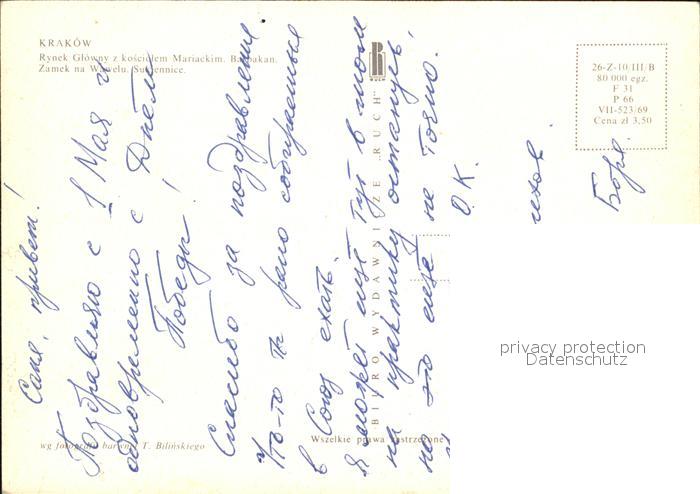 KRAKÓW
Rynek Główny z kościołem Mariackim. Barbakan.
Zamek na Wawelu. Sukiennice.
BIURO WYDAWNICZE „RUCH”
26-Z-10/III/B
80 000 egz.
F 31
P 66
VII-523/69
Cena zł 3,50
Саня, привет!
Поздравляю с 1 Мая и
одновременно с Днем
Победы!
Спасибо за поздравление.
Что-то ты рано собираешься
в Союз ехать.
Я может ещё тут в мом
на практику останусь,
но это ещё не точно.
О.К.
Боря.
wg fotografii barwnej T. Bilińskiego
Wszelkie prawa zastrzeżone
privacy protection
Datenschutz